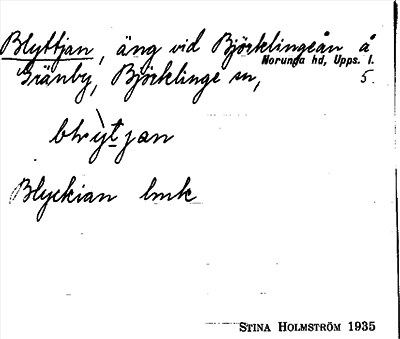 Blyttjan, äng vid Björklingeån å
Norunda hd, Upps. l.
Gränby, Björklinge sn, 5.
blrỳtjan
Blyckian lmk
STINA HOLMSTRÖM 1935